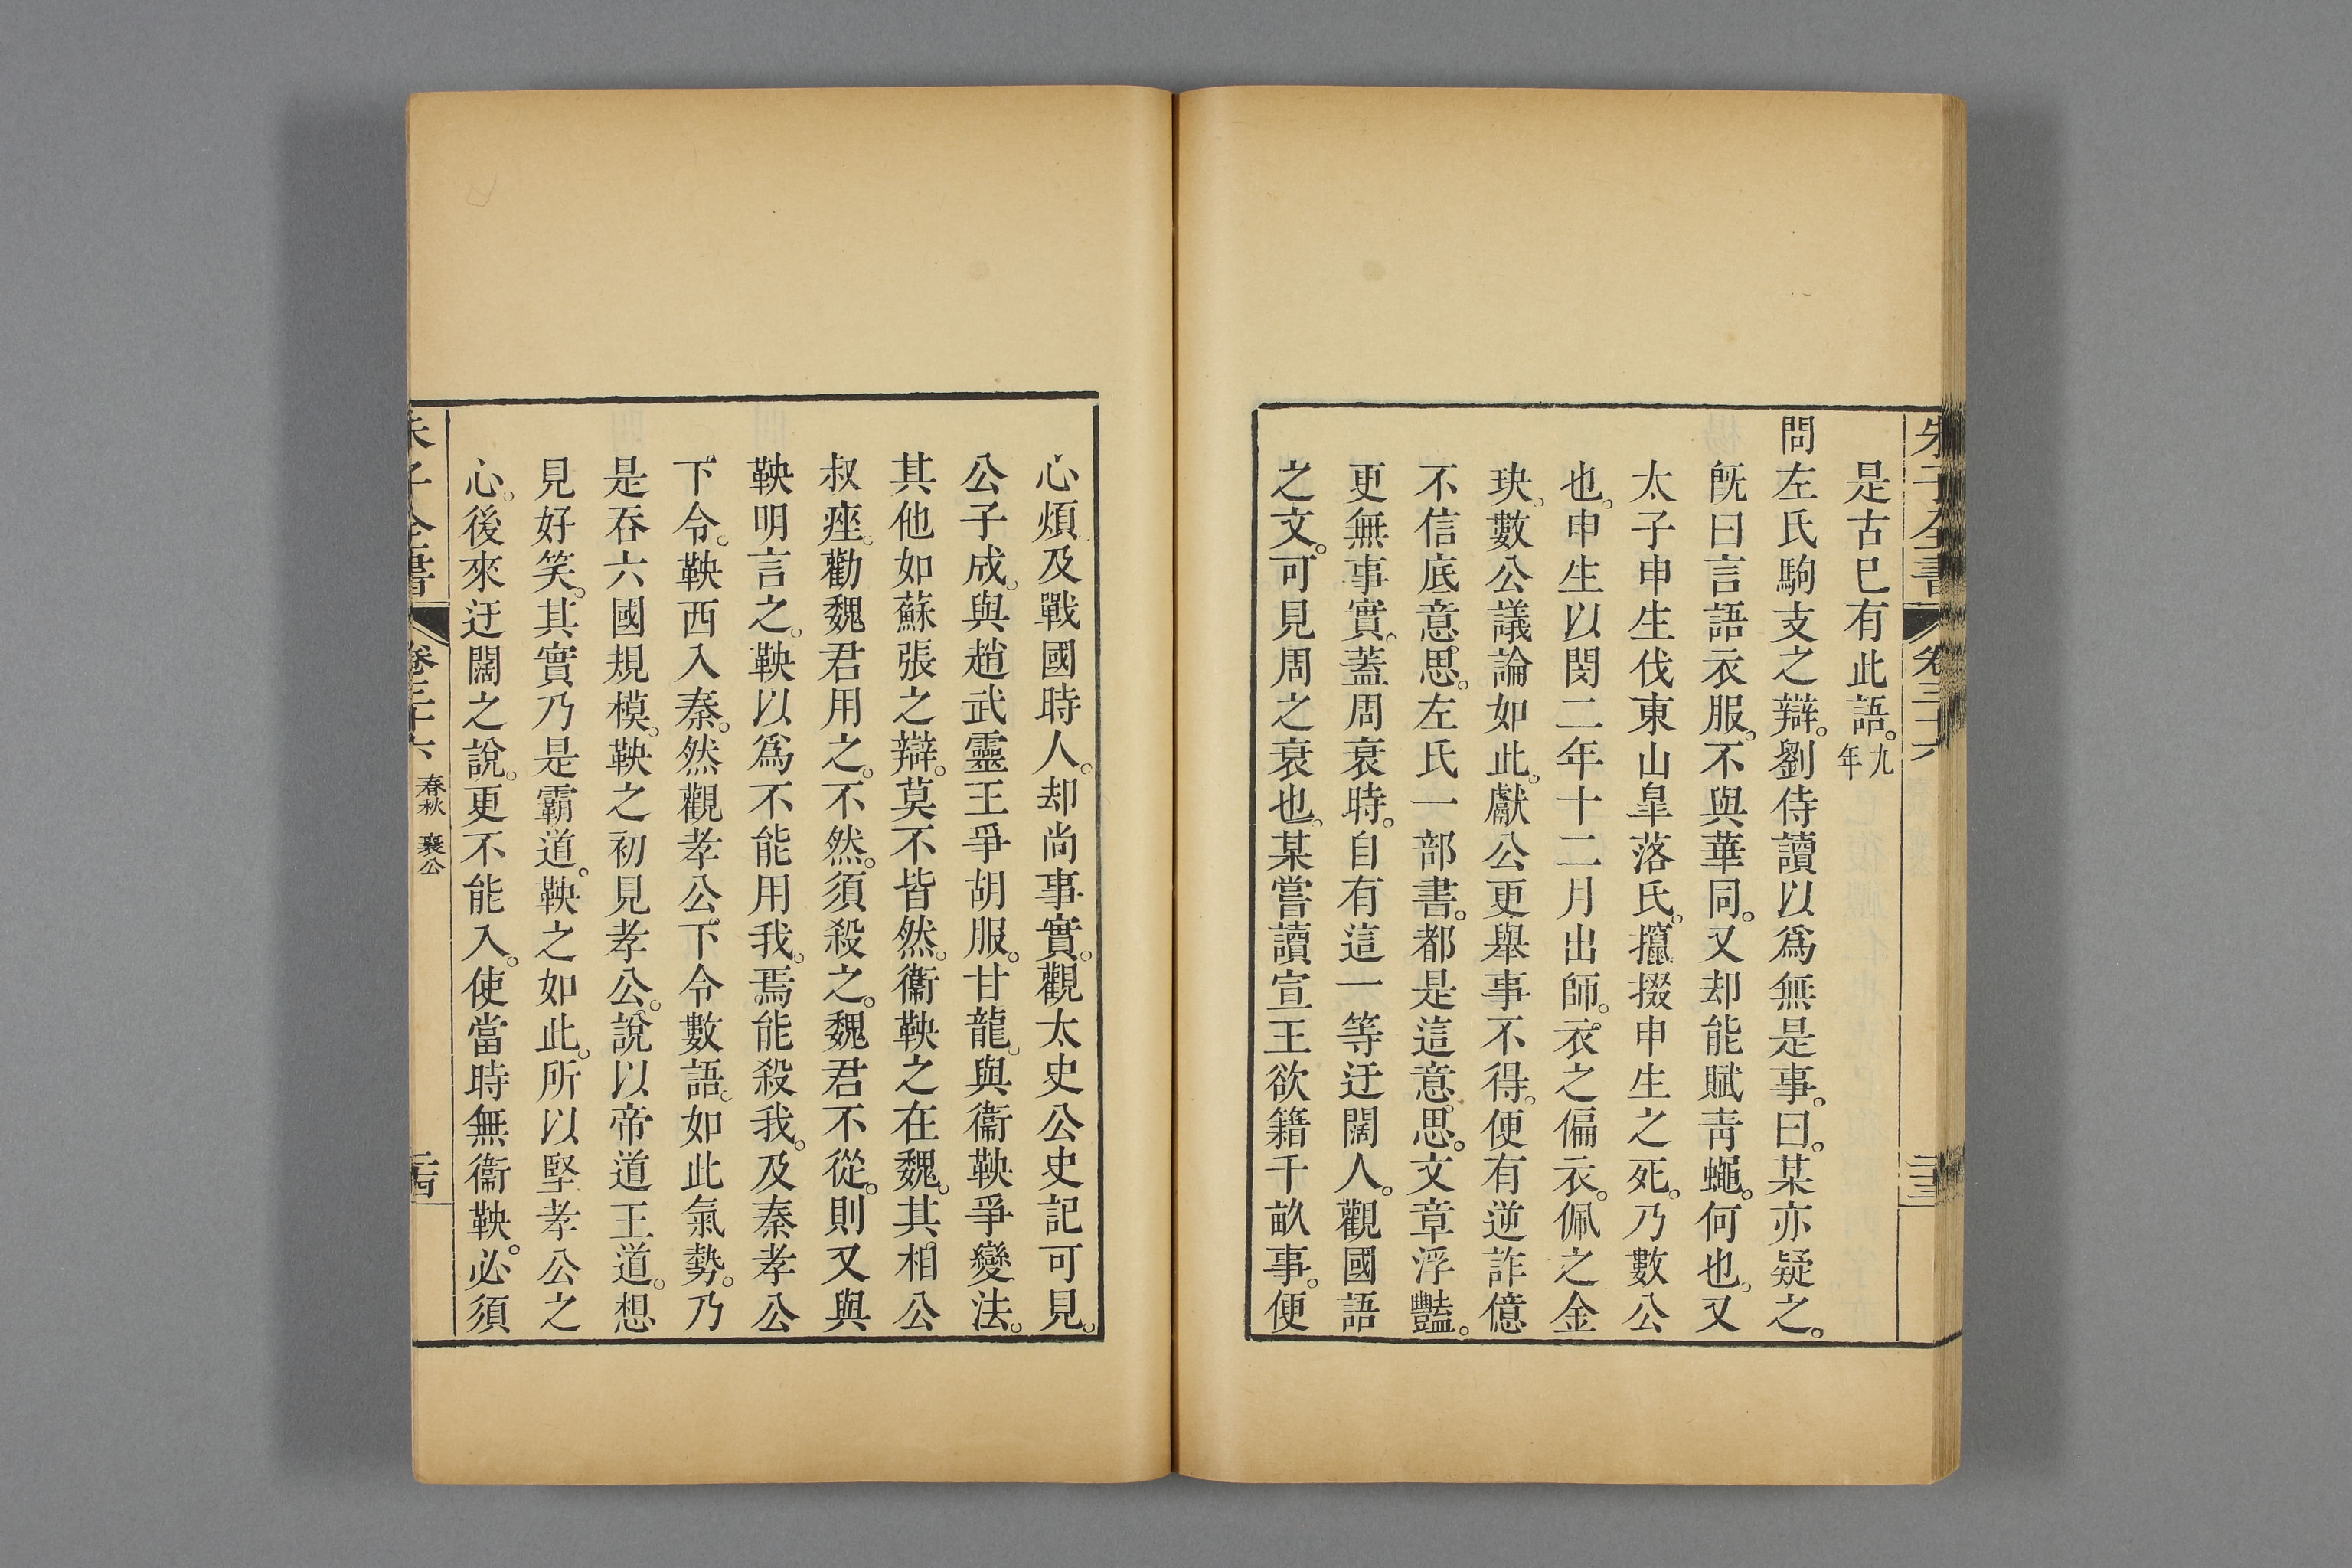 朱子全書 卷三十六 二十三
是古已有此語。九年
問左氏駒支之辯。劉侍讀以爲無是事。曰。某亦疑之。
旣曰言語衣服。不與華同。又却能賦靑蠅。何也。又
太子申生伐東山皐落氏。攛掇申生之死。乃數公
也。申生以閔二年十二月出師。衣之偏衣。佩之金
玦。數公議論如此。獻公更舉事不得。便有逆詐億
不信底意思。左氏一部書。都是這意思。文章浮豔。
更無事實。蓋周衰時。自有這一等迂闊人。觀國語
之文。可見周之衰也。某嘗讀宣王欲籍千畝事。便
心煩。及戰國時人。却尚事實。觀太史公史記可見。
公子成。與趙武靈王爭胡服。甘龍。與衞鞅爭變法。
其他如蘇張之辯。莫不皆然。衞鞅之在魏。其相公
叔痤。勸魏君用之。不然。須殺之。魏君不從。則又與
鞅明言之。鞅以爲不能用我。焉能殺我。及秦孝公
下令。鞅西入秦。然觀孝公下令數語。如此氣勢。乃
是吞六國規模。鞅之初見孝公。說以帝道王道。想
見好笑。其實乃是霸道。鞅之如此。所以堅孝公之
心。後來迂闊之說。更不能入。使當時無衞鞅。必須
朱子全書 卷三十六 春秋 襄公 二十四